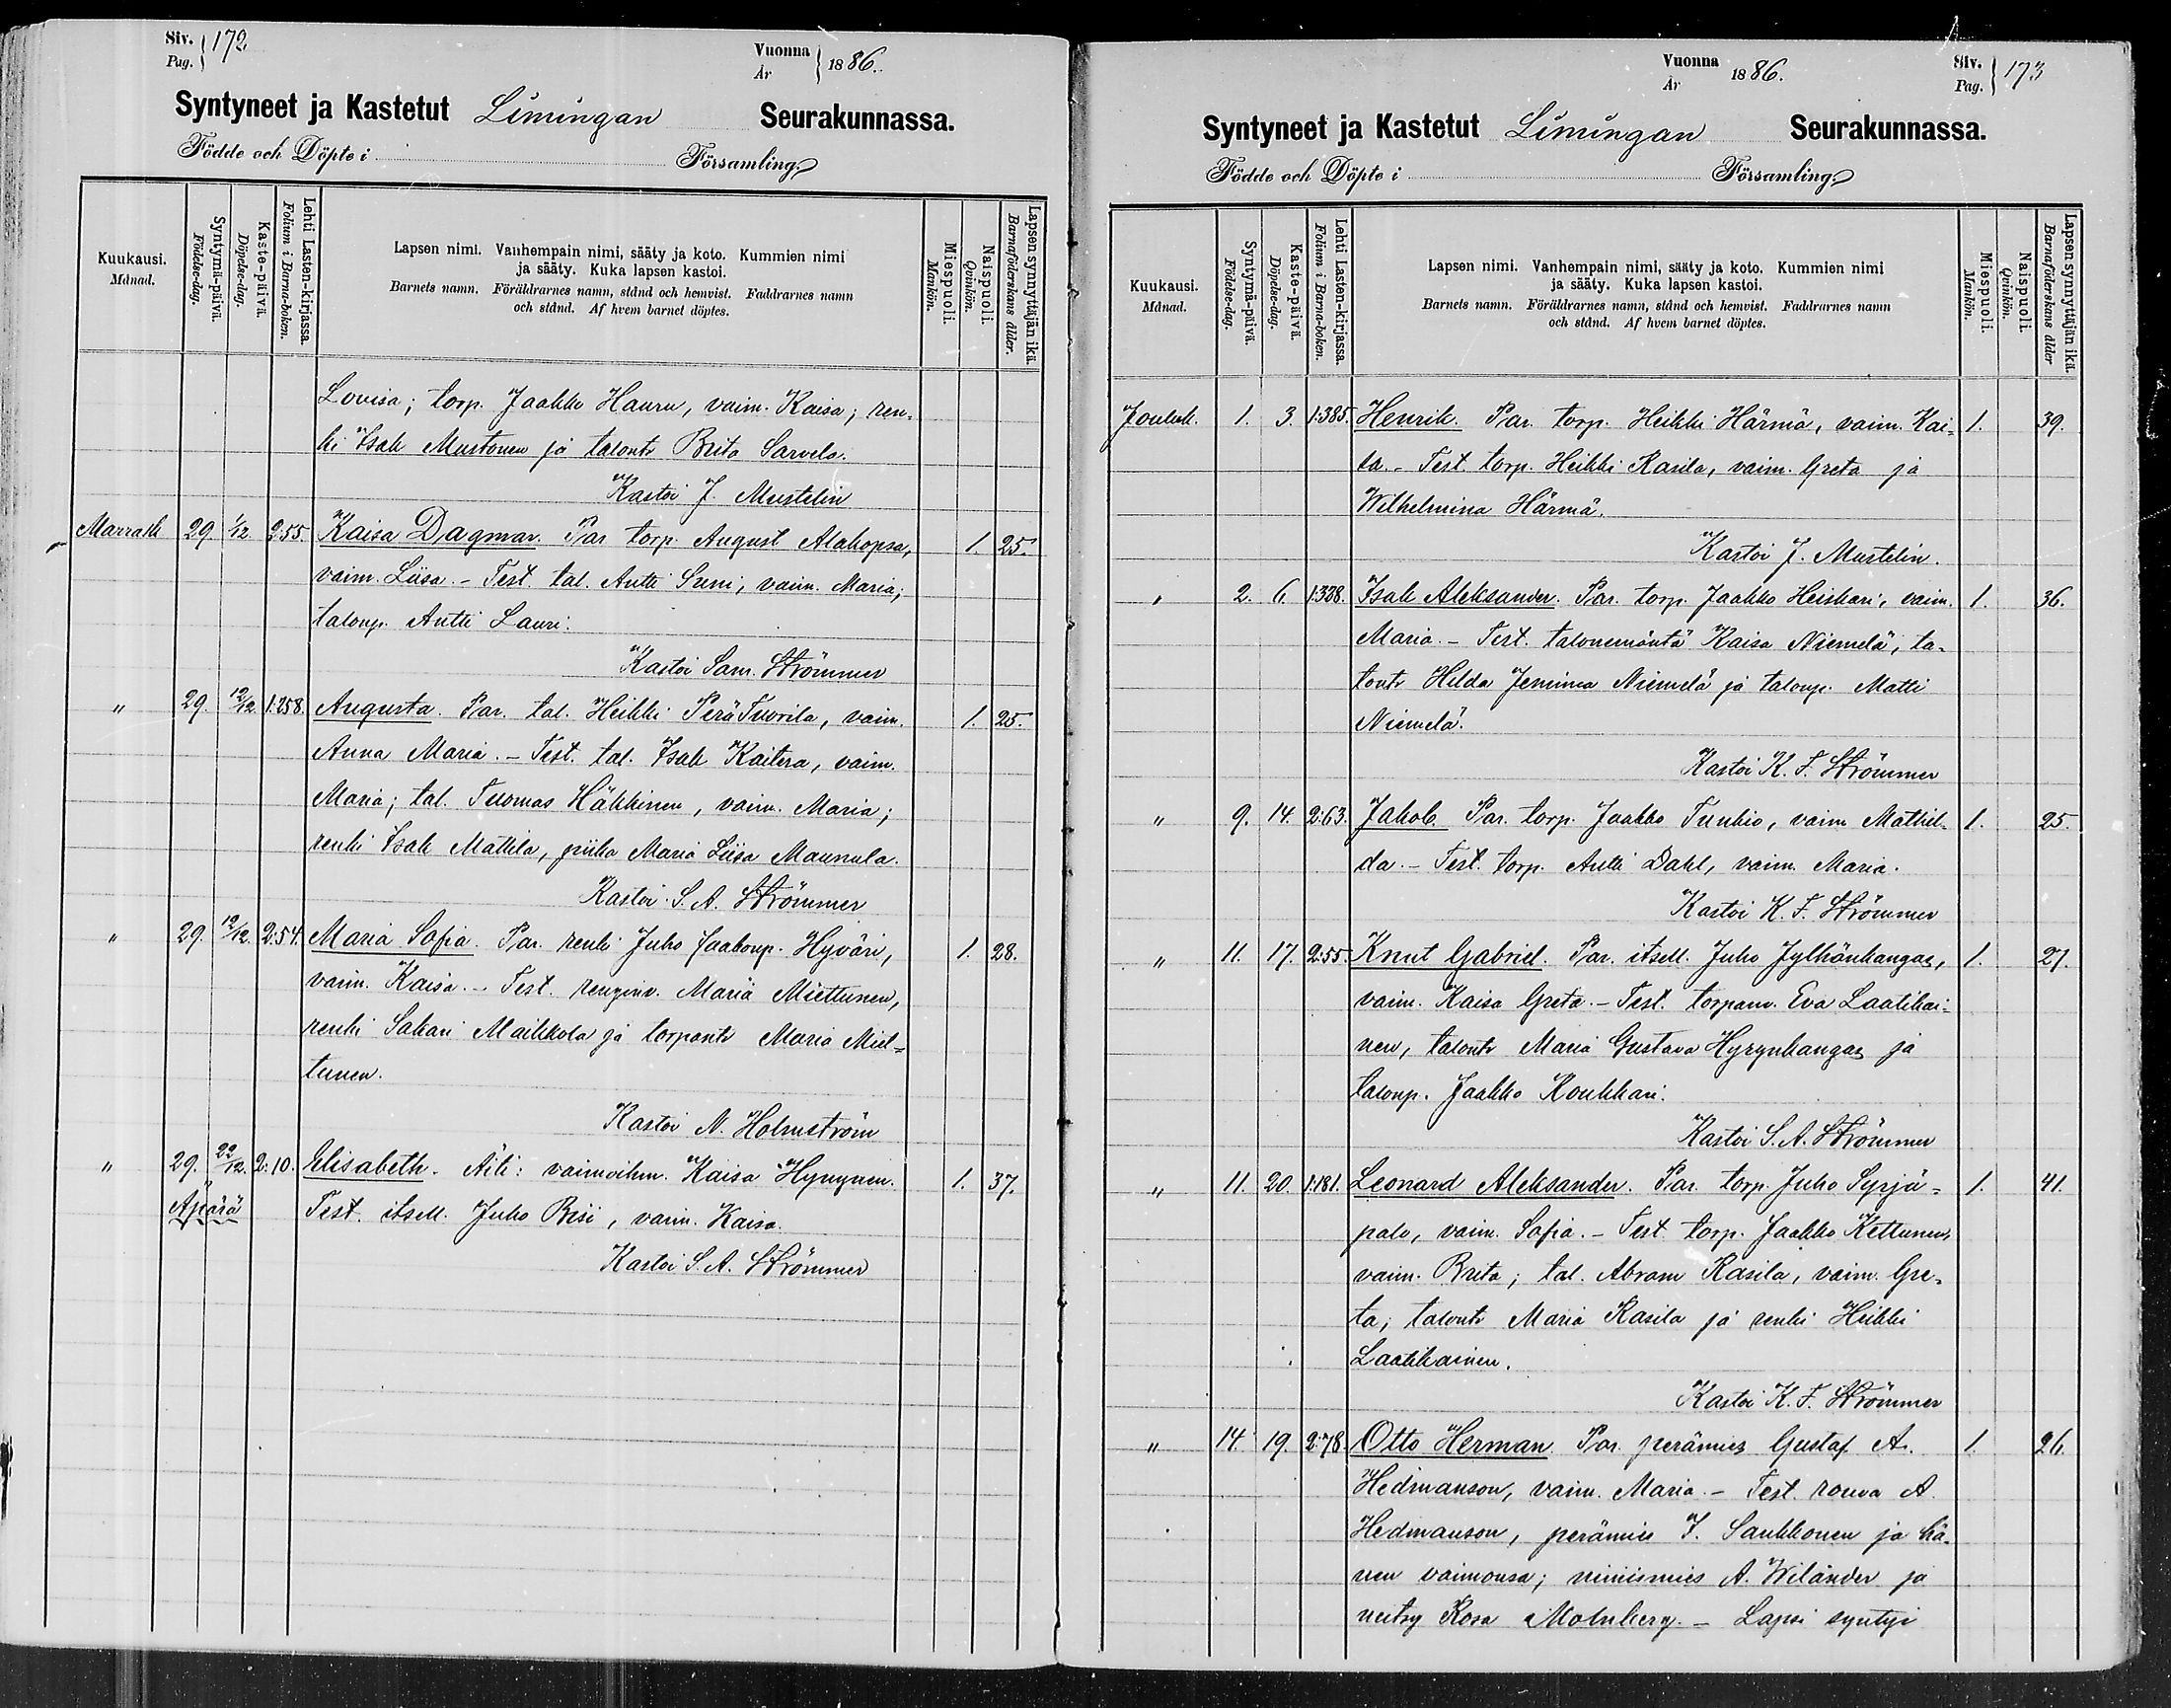 Siv. Pag. 172
Vuonna År 1886.
Syntyneet ja Kastetut Limingan Seurakunnassa.
Födde och Döpte i Församling.
Kuukausi. Månad.
Syntymä-päivä. Födelse-dag.
Kaste-päivä. Döpelse-dag.
Lehti Lasten-kirjassa. Folium i Barna-boken.
Lapsen nimi. Vanhempain nimi, sääty ja koto. Kummien nimi
ja sääty. Kuka lapsen kastoi.
Barnets namn. Föräldrarnes namn, stånd och hemvist. Faddrarnes namn
och stånd. Af hvem barnet döptes.
Miespuoli. Mankön.
Naispuoli. Qvinkön.
Lapsen synnyttäjän ikä. Barnaföderskans ålder.
Lovisa; torp. Jaakko Hauru, vaim. Kaisa; ren-
ki Isak Mustonen ja talontr Brita Sarvela.
Kastoi J. Mustelin
Marrask 29. 1/12. 2:55. Kaisa Dagmar. Par. torp. August Alakopsa, 1. 25.
vaim. Liisa. – Test. tal. Antti Suni, vaim. Maria;
talonp. Antti Lauri.
Kastoi Sam. Strömmer
" 29. 12/12. 1:258. Augusta. Par. tal. Heikki PeräTuorila, vaim. 1. 25.
Anna Maria. – Test. tal. Isak Kaitera, vaim.
Maria; tal. Tuomas Häkkinen, vaim. Maria;
renki Isak Mattila, piika Maria Liisa Maunula.
Kastoi S. A. Strömmer
" 29. 12/12. 2:54. Maria Sofia. Par. renki Juho Jaakonp. Hyväri, 1. 28.
vaim. Kaisa. – Test. renginv. Maria Miettunen,
renki Sakari Maikkola ja torpantr Maria Miet-
tunen.
Kastoi N. Holmström
" 29. 22/12. 2:10. Elisabeth. Äiti: vaimoihm. Kaisa Hynynen. 1. 37.
Äpärä Test. itsell. Juho Riski, vaim. Kaisa.
Kastoi S. A. Strömmer
Vuonna År 1886.
Siv. Pag. 173
Syntyneet ja Kastetut Limingan Seurakunnassa.
Födde och Döpte i Församling.
Kuukausi. Månad.
Syntymä-päivä. Födelse-dag.
Kaste-päivä. Döpelse-dag.
Lehti Lasten-kirjassa. Folium i Barna-boken.
Lapsen nimi. Vanhempain nimi, sääty ja koto. Kummien nimi
ja sääty. Kuka lapsen kastoi.
Barnets namn. Föräldrarnes namn, stånd och hemvist. Faddrarnes namn
och stånd. Af hvem barnet döptes.
Miespuoli. Mankön.
Naispuoli. Qvinkön.
Lapsen synnyttäjän ikä. Barnaföderskans ålder
Jouluk. 1. 3. 1:385. Henrik. Par. torp. Heikki Härmä, vaim. Kai- 1. 39.
sa. – Test. torp. Heikki Rasila, vaim. Greta ja
Wilhelmina Härmä.
Kastoi J. Mustelin.
" 2. 6. 1:338. Isak Aleksander. Par. torp. Jaakko Heiskari, vaim. 1. 36.
Maria. – Test. talonemäntä Kaisa Niemelä, ta-
lontr Hilda Jemina Niemelä ja talonp. Matti
Niemelä.
Kastoi K. F. Strömmer
" 9. 14. 2:63. Jakob. Par. torp. Jaakko Tunkio, vaim Mathil- 1. 25.
da. – Test. torp. Antti Dahl, vaim. Maria.
Kastoi K. F. Strömmer
" 11. 17. 2:55. Knut Gabriel. Par. itsell. Juho Jylhänkangas, 1. 27.
vaim. Kaisa Greta. – Test. torpanv. Eva Laatikai-
nen, talontr Maria Gustava Hyrynkangas ja
talonp. Jaakko Koukkari.
Kastoi S. A. Strömmer
" 11. 20. 1:181. Leonard Aleksander. Par. torp. Juho Syrjä- 1. 41.
palo, vaim. Sofia. – Test. torp. Jaakko Kettunen,
vaim. Brita; tal. Abram Rasila, vaim. Gre-
ta; talontr Maria Rasila ja renki Heikki
Laatikainen.
Kastoi K. F. Strömmer
" 14. 19. 2:78. Otto Herman. Par. perämies Gustaf A. 1. 26.
Hedmanson, vaim. Maria. – Test. rouva A.
Hedmanson, perämies J. Saukkonen ja hä-
nen vaimonsa; nimismies A. Wiländer ja
neitsy Rosa Molnberg. – Lapsi syntyi